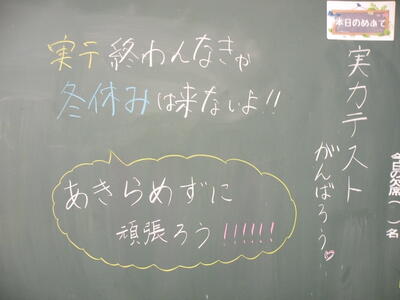 本日のめあて
実力テスト
がんばろう!!
今日の欠席( )名
実テ終わんなきゃ
冬休みは来ないよ!!
あきらめずに
頑張ろう!!!!!!